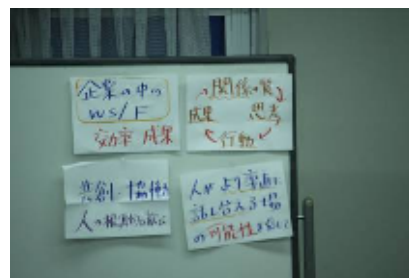 企業の中の
WS/F
効率 成果
関係の質
成果 思考
行動
共創 協働
人の根源から
人がより率直に
話し合える場
の可能性を